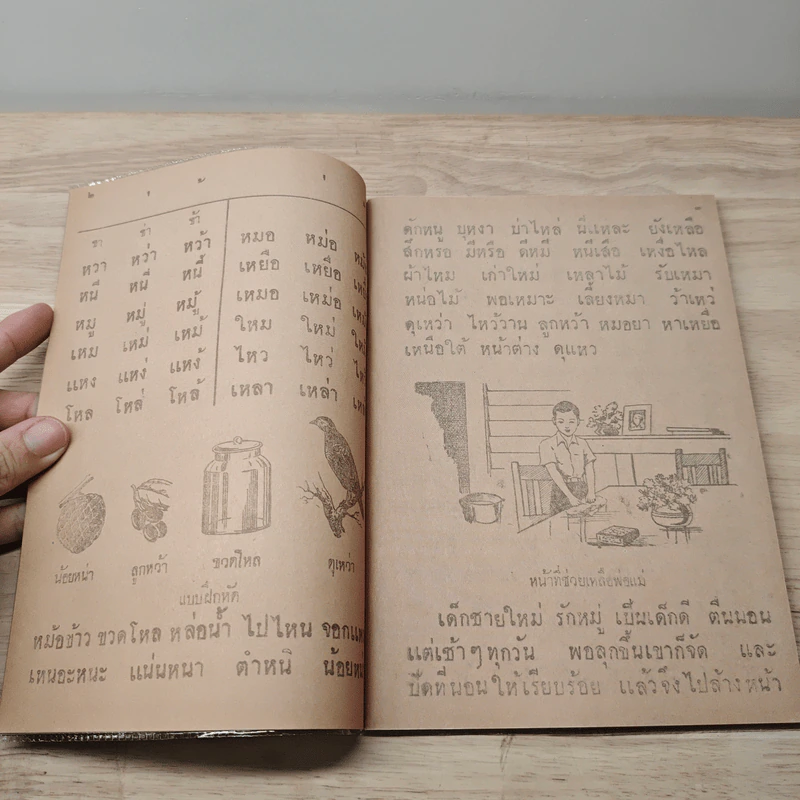 ขา ข่า ข้า
หวา หว่า หว้า หมอ หม่อ
หนี หนี่ หนี้ เหยือ เหยื่อ
หมู หมู่ หมู้ เหมอ เหม่อ
เหม เหม่ เหม้ ใหม ใหม่
แหง แหง่ แหง้ ไหว ไหว่
โหล โหล่ โหล้ เหลา เหล่า
น้อยหน่า ลูกหว้า ขวดโหล ดุเหว่า
แบบฝึกหัด
หม้อข้าว ขวดโหล หล่อน้ำ ไปไหน
เหนอะหนะ แน่นหนา ตำหนิ
ดักหนู บุหงา บ่าไหล่ ยังเหลือ
สึกหรอ มีหรือ ดีหมี หนีเสือ เหงื่อไหล
ผ้าไหม เก่าใหม่ เหลาไม้ รับเหมา
หน่อไม้ พอเหมาะ เลี้ยงหมา ว้าเหว่
ดุเหว่า ไหว้วาน ลูกหว้า หมอยา หาเหยื่อ
เหนือใต้ หน้าต่าง ดุแหว
หน้าที่ช่วยเหลือพ่อแม่
เด็กชายใหม่ รักหมู่ เป็นเด็กดี ตื่นนอน
แต่เช้าๆทุกวัน พอลุกขึ้นเขาก็จัด และ
ปัดที่นอนให้เรียบร้อย แล้วจึงไปล้างหน้า